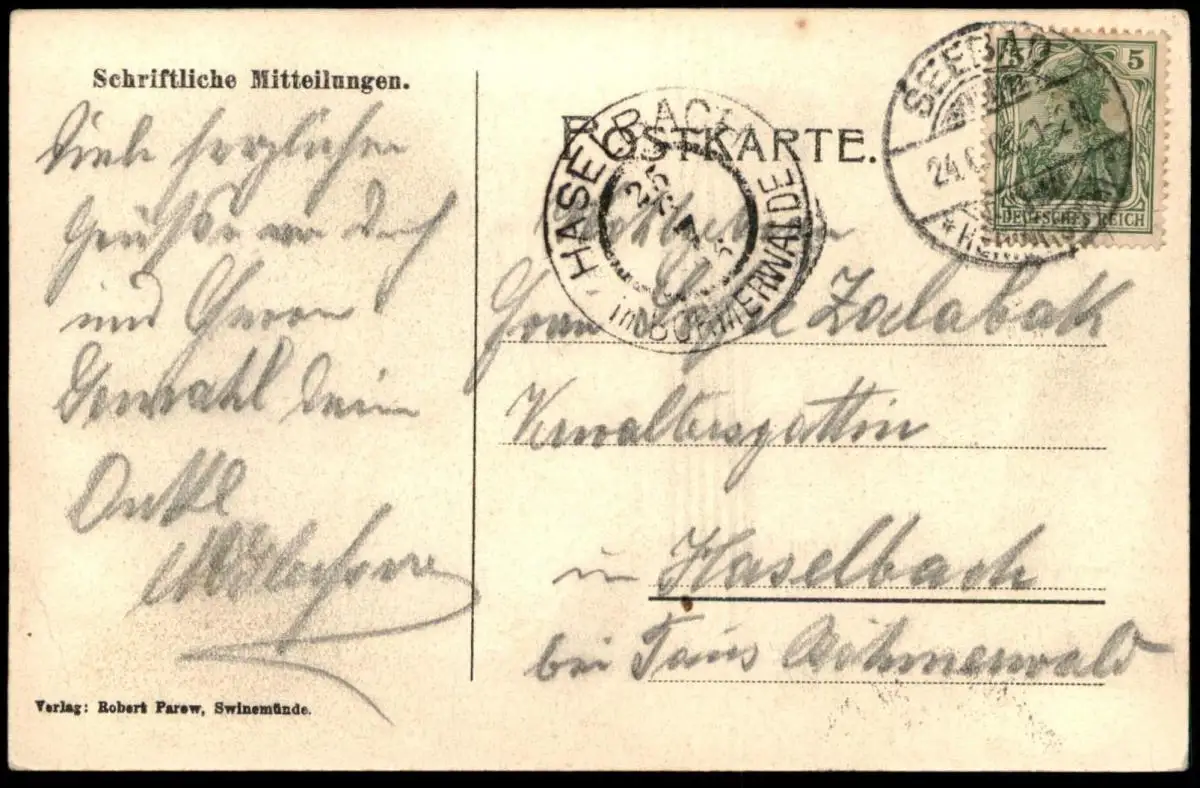 Schriftliche Mitteilungen.
Viele herzlichen
Grüße an dich
und Herrn
Gemahl dein
Onkel
Verlag: Robert Parow, Swinemünde.
POSTKARTE.
HASELBACH
im BÖHMERWALDE
SEEBAD
24.
5 5
DEUTSCHES REICH
Frau Zadabak
Verwaltersgattin
in Haselbach
bei Taus Böhmerwald